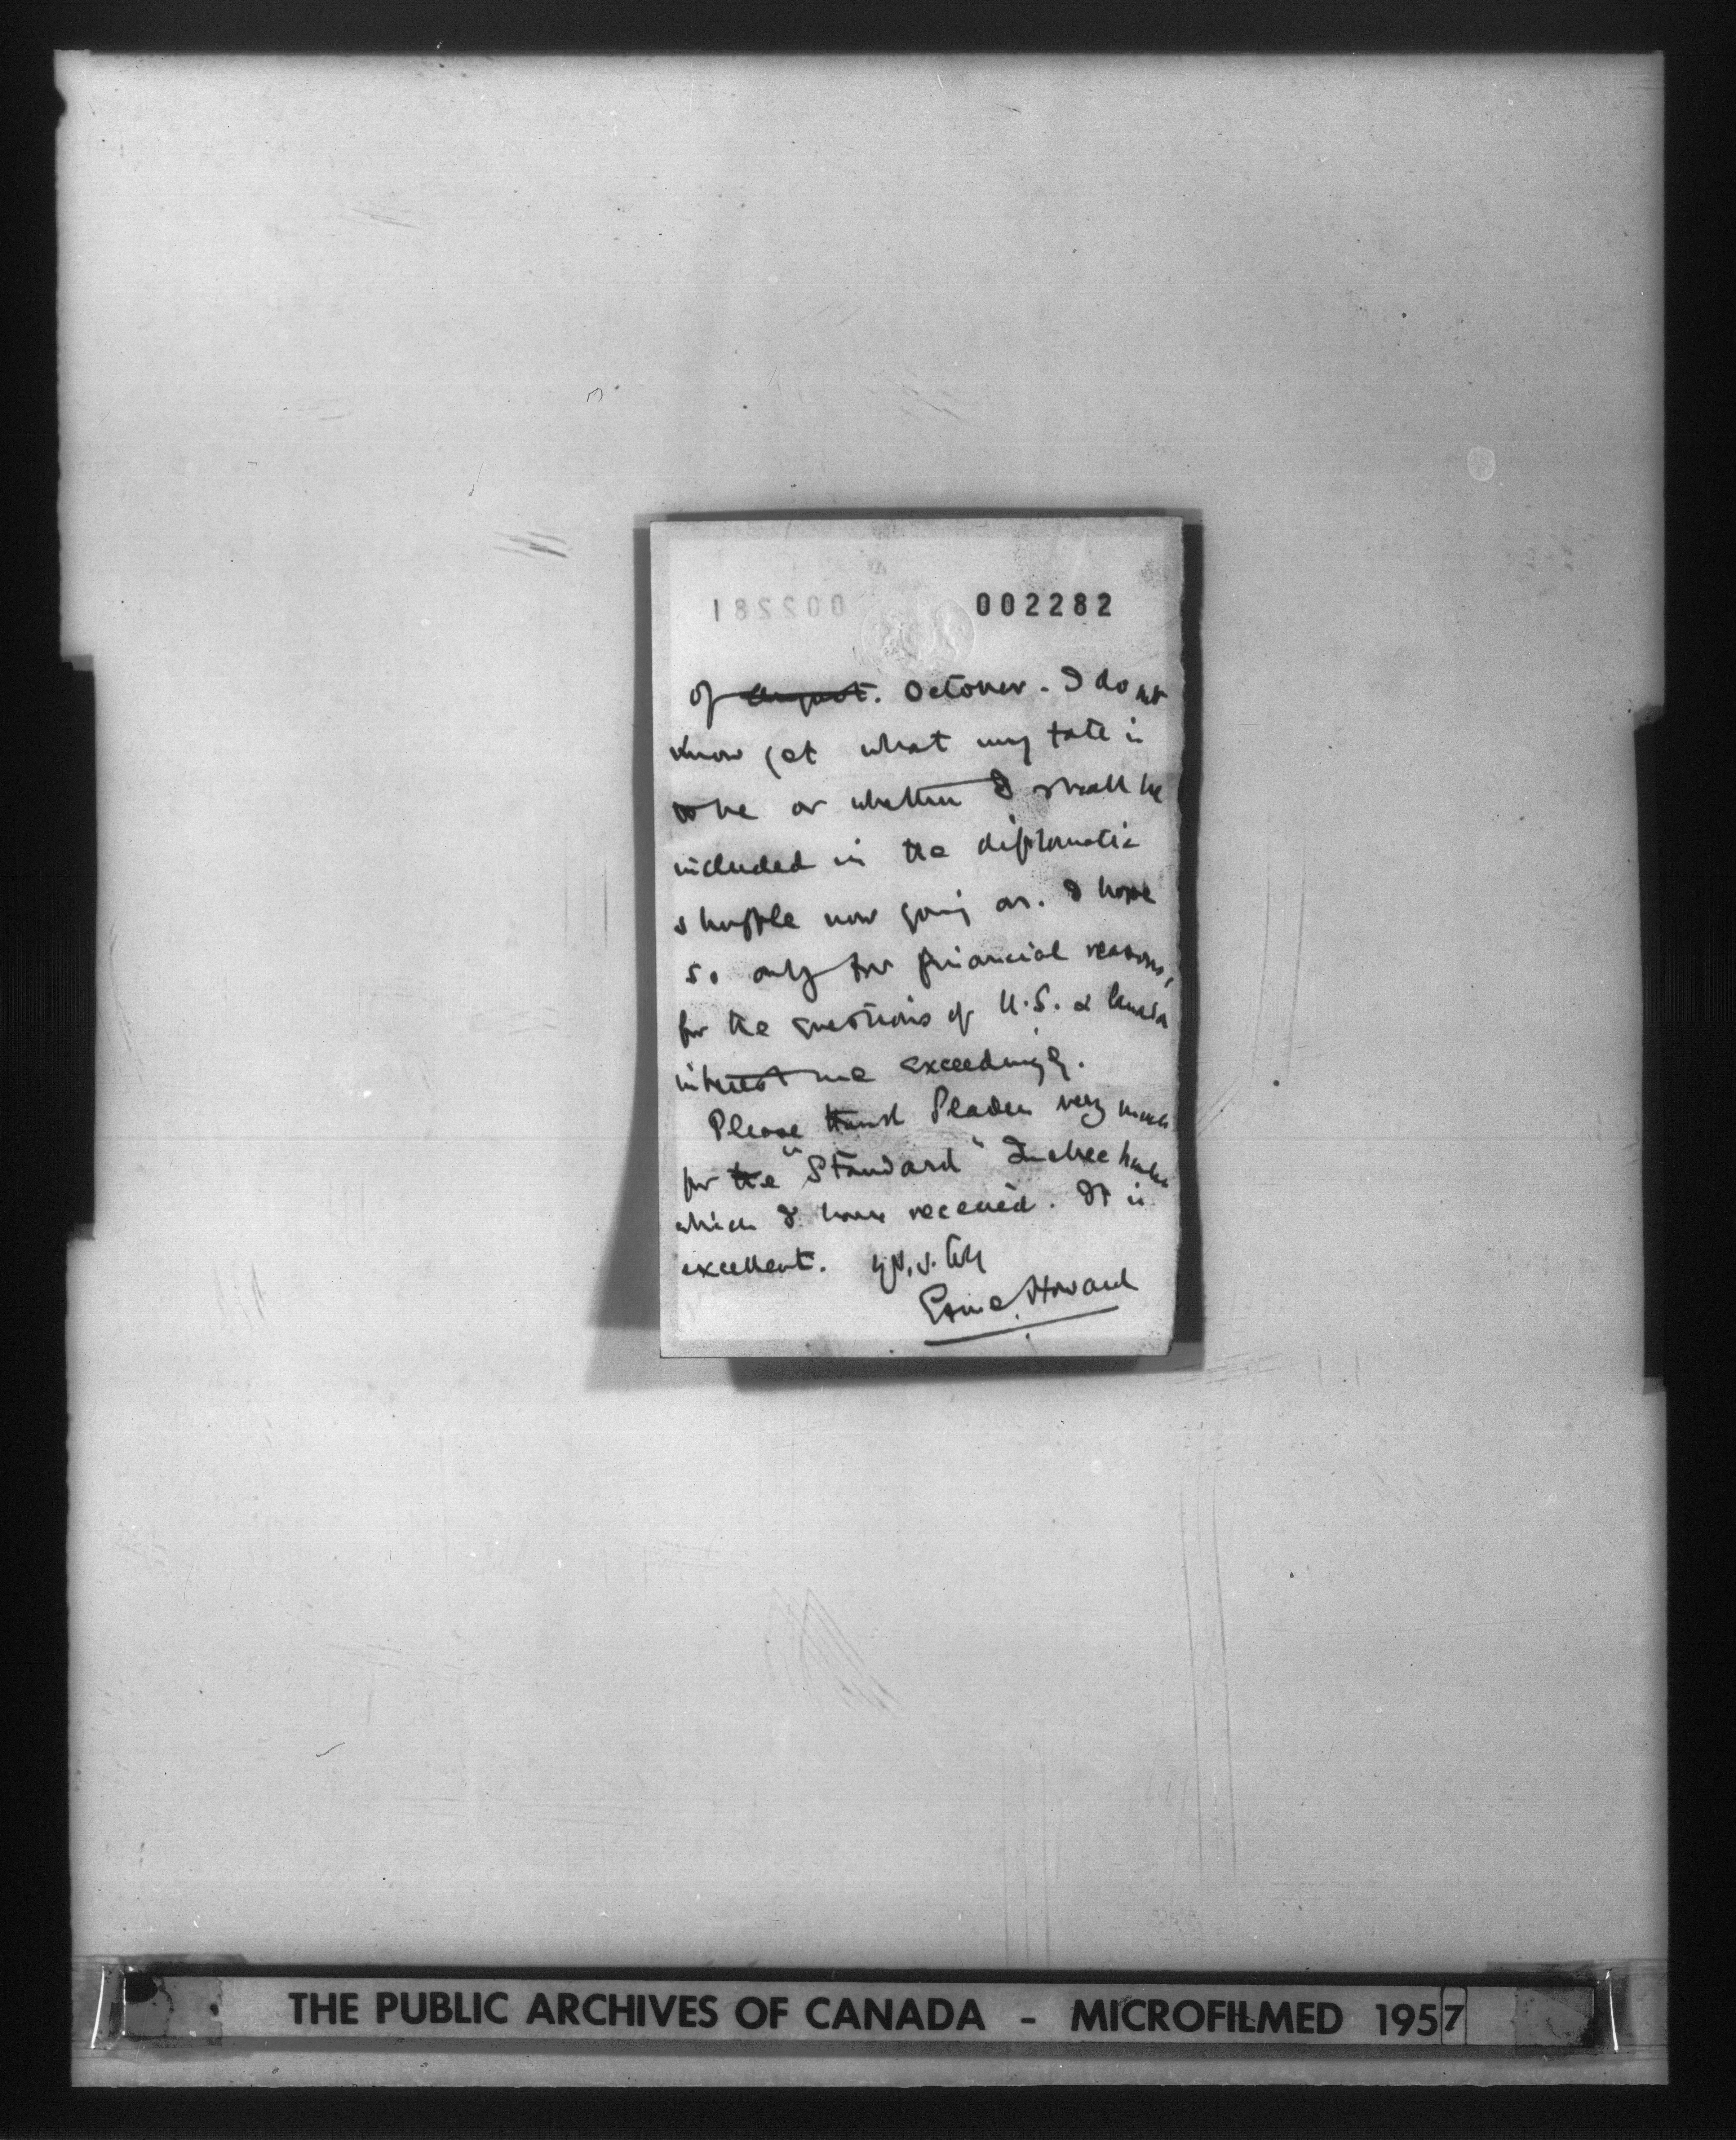 002282
of August. October. I do not
know yet what my fate is
to be or whether I shall be
included in the diplomatic
shuffle now going on. I hope
so only for financial reasons,
for the questions of U.S. & Canada
interest me exceedingly.
Please thank Sladen very much
for the "Standard" Quebec
which I have received. It is
excellent. Yrs. s. try
Esme Howard
THE PUBLIC ARCHIVES OF CANADA - MICROFILMED 1957